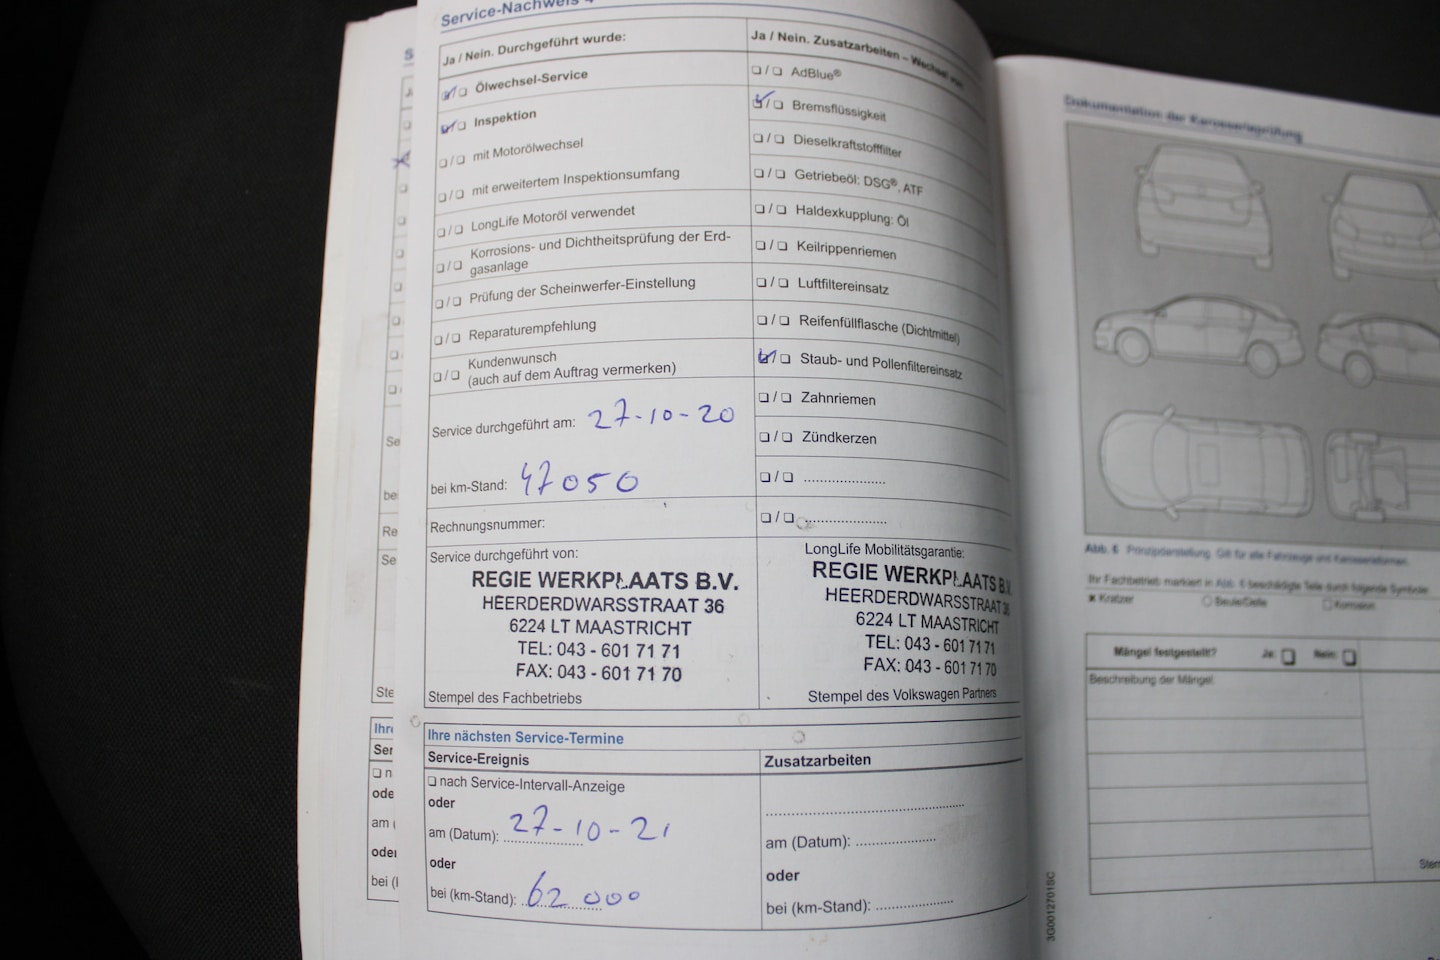 Service-Nachweis
Ja / Nein. Durchgeführt wurde:
☑/❑ Ölwechsel-Service
☑/❑ Inspektion
❑/❑ mit Motorölwechsel
❑/❑ mit erweitertem Inspektionsumfang
❑/❑ LongLife Motoröl verwendet
❑/❑ Korrosions- und Dichtheitsprüfung der Erd-
gasanlage
❑/❑ Prüfung der Scheinwerfer-Einstellung
❑/❑ Reparaturempfehlung
❑/❑ Kundenwunsch
(auch auf dem Auftrag vermerken)
Service durchgeführt am: 27-10-20
bei km-Stand: 47050
Rechnungsnummer:
Service durchgeführt von:
REGIE WERKPLAATS B.V.
HEERDERDWARSSTRAAT 36
6224 LT MAASTRICHT
TEL: 043 - 601 71 71
FAX: 043 - 601 71 70
Stempel des Fachbetriebs
Ja / Nein. Zusatzarbeiten – Wechsel von:
❑/❑ AdBlue®
☑/❑ Bremsflüssigkeit
❑/❑ Dieselkraftstofffilter
❑/❑ Getriebeöl: DSG®, ATF
❑/❑ Haldexkupplung: Öl
❑/❑ Keilrippenriemen
❑/❑ Luftfiltereinsatz
❑/❑ Reifenfüllflasche (Dichtmittel)
☑/❑ Staub- und Pollenfiltereinsatz
❑/❑ Zahnriemen
❑/❑ Zündkerzen
❑/❑ .....................
❑/❑ .....................
LongLife Mobilitätsgarantie:
REGIE WERKPLAATS B.V.
HEERDERDWARSSTRAAT 36
6224 LT MAASTRICHT
TEL: 043 - 601 71 71
FAX: 043 - 601 71 70
Stempel des Volkswagen Partners
Ihre nächsten Service-Termine
Service-Ereignis
❑ nach Service-Intervall-Anzeige
oder
am (Datum): 27-10-21
oder
bei (km-Stand): 62000
Zusatzarbeiten
am (Datum): ....................
oder
bei (km-Stand): ....................
Dokumentation der Karosserieprüfung
Abb. 6 Prinzipdarstellung. Gilt für alle Fahrzeuge und Karosserieformen.
Ihr Fachbetrieb markiert in Abb. 6 beschädigte Teile durch folgende Symbole:
Kratzer
Beule/Delle
Korrosion
Mängel festgestellt? Ja: ❑ Nein: ❑
Beschreibung der Mängel:
3G0012701SC